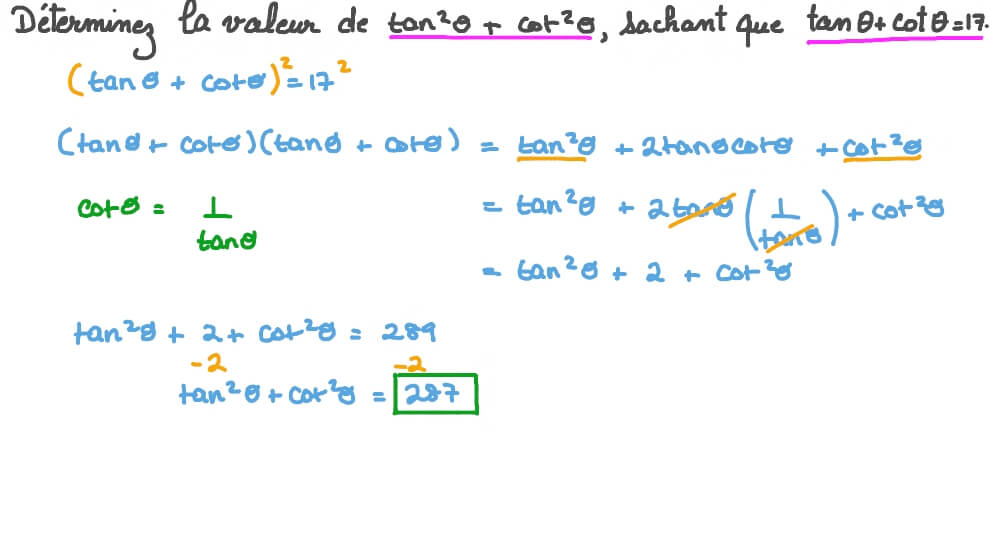 Déterminez la valeur de tan²θ + cot²θ, sachant que tan θ + cot θ = 17.
(tanθ + cotθ)² = 17²
(tanθ + cotθ)(tanθ + cotθ) = tan²θ + 2tanθcotθ + cot²θ
cotθ = 1/tanθ
= tan²θ + 2tanθ(1/tanθ) + cot²θ
= tan²θ + 2 + cot²θ
tan²θ + 2 + cot²θ = 289
-2 -2
tan²θ + cot²θ = 287